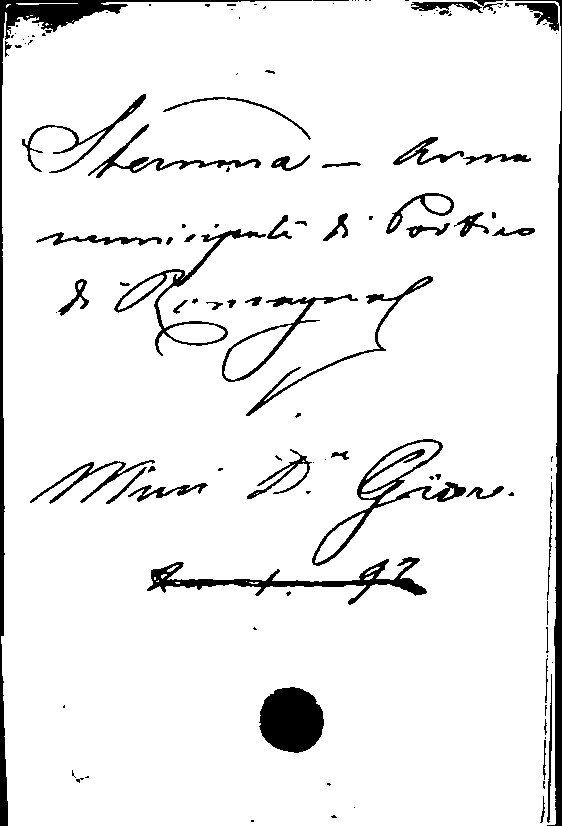 Stemma — Arma
municipale di Portico
di Romagna
Mini D.r Giov.
97